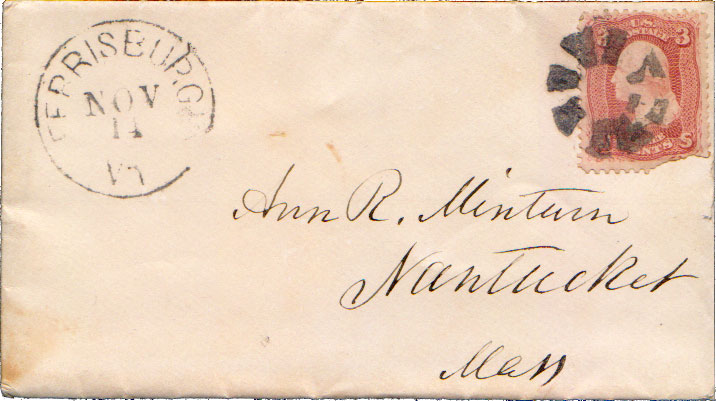 FERRISBURGH
NOV
14
VT
U.S.
POSTAGE
3 3
CENTS
Ann R. Minturn
Nantucket
Mass